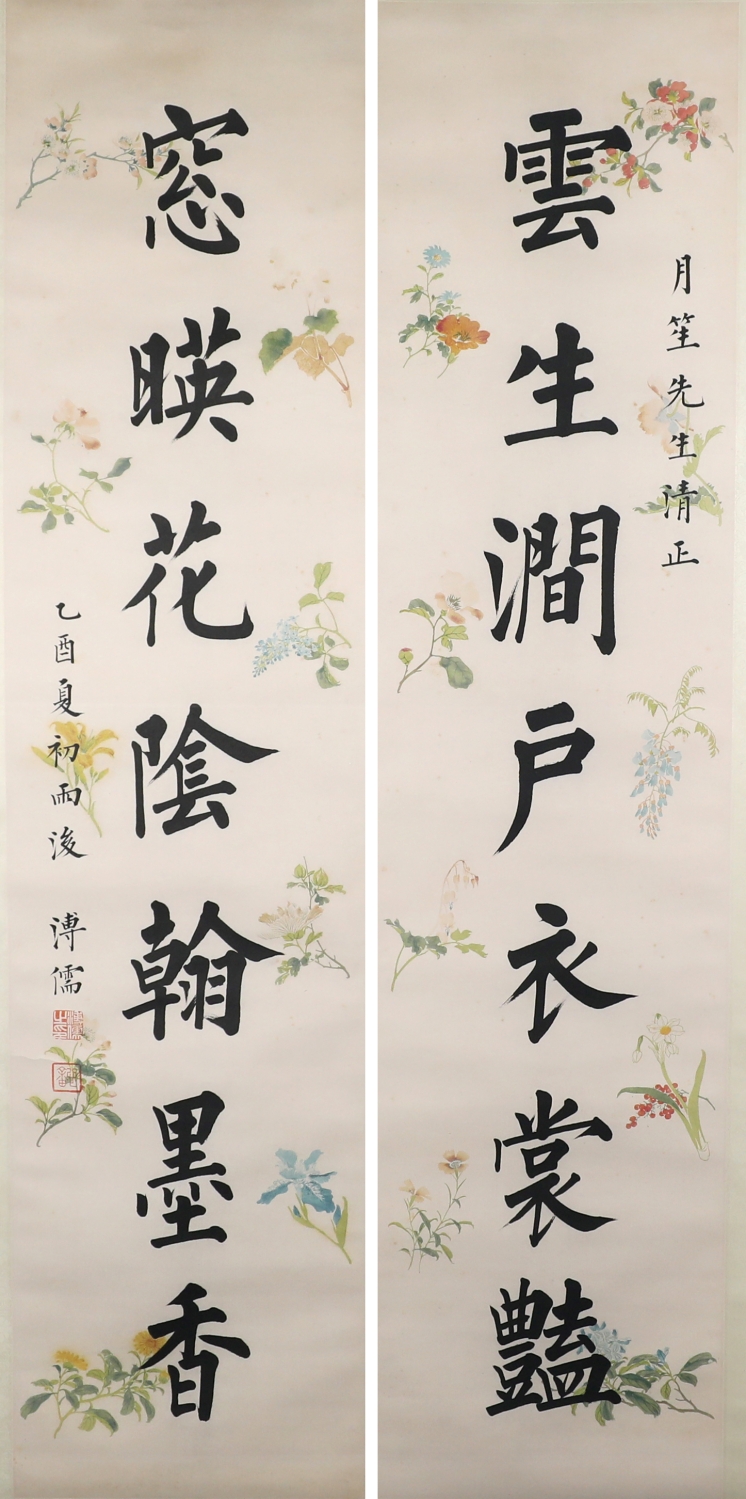 月笙先生清正
雲生澗戶衣裳豔
窓暎花陰翰墨香
乙酉夏初雨後 溥儒